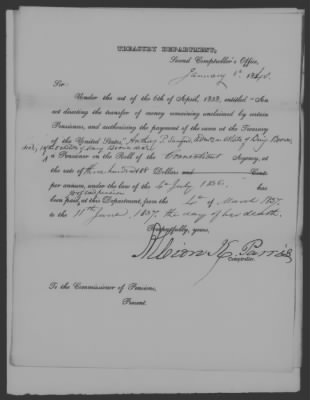 TREASURY DEPARTMENT,
Second Comptroller's Office,
January 1st 1840.
Sir:
Under the act of the 6th of April, 1838, entitled "An
act directing the transfer of money remaining unclaimed by certain
Pensions, and authorizing the payment of the same at the Treasury
of the United States," Anthony S. Executor of
dec'd, of Mary Brown
a Pensioner on the Roll of the Connecticut Agency, at
the rate of three hundred Dollars and Cents
per annum, under the law of the 4th July 1836, has
been paid, at this Department, from the 4th of March 1837.
to the 11th June 1837. the day of her death.
Respectfully, yours,
Albion K. Parris
Comptroller.
To the Commissioner of Pensions,
Present.